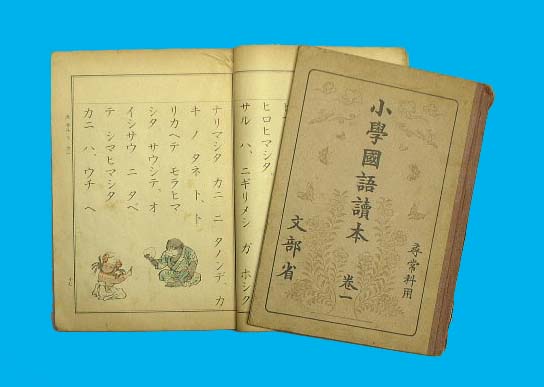 尋常科用
小學國語讀本
卷一
文部省
ヒロヒマシタ。
サル ハ、ニギリメシ ガ ホシク
ナリマシタ カニ ニ タノンデ、カ
キ ノ タネ ト、ト
リカヘテ モラヒマ
シタ サウシテ、オ
イシサウ ニ タベ
テ シマヒマシタ
カニ ハ、ウチ ヘ